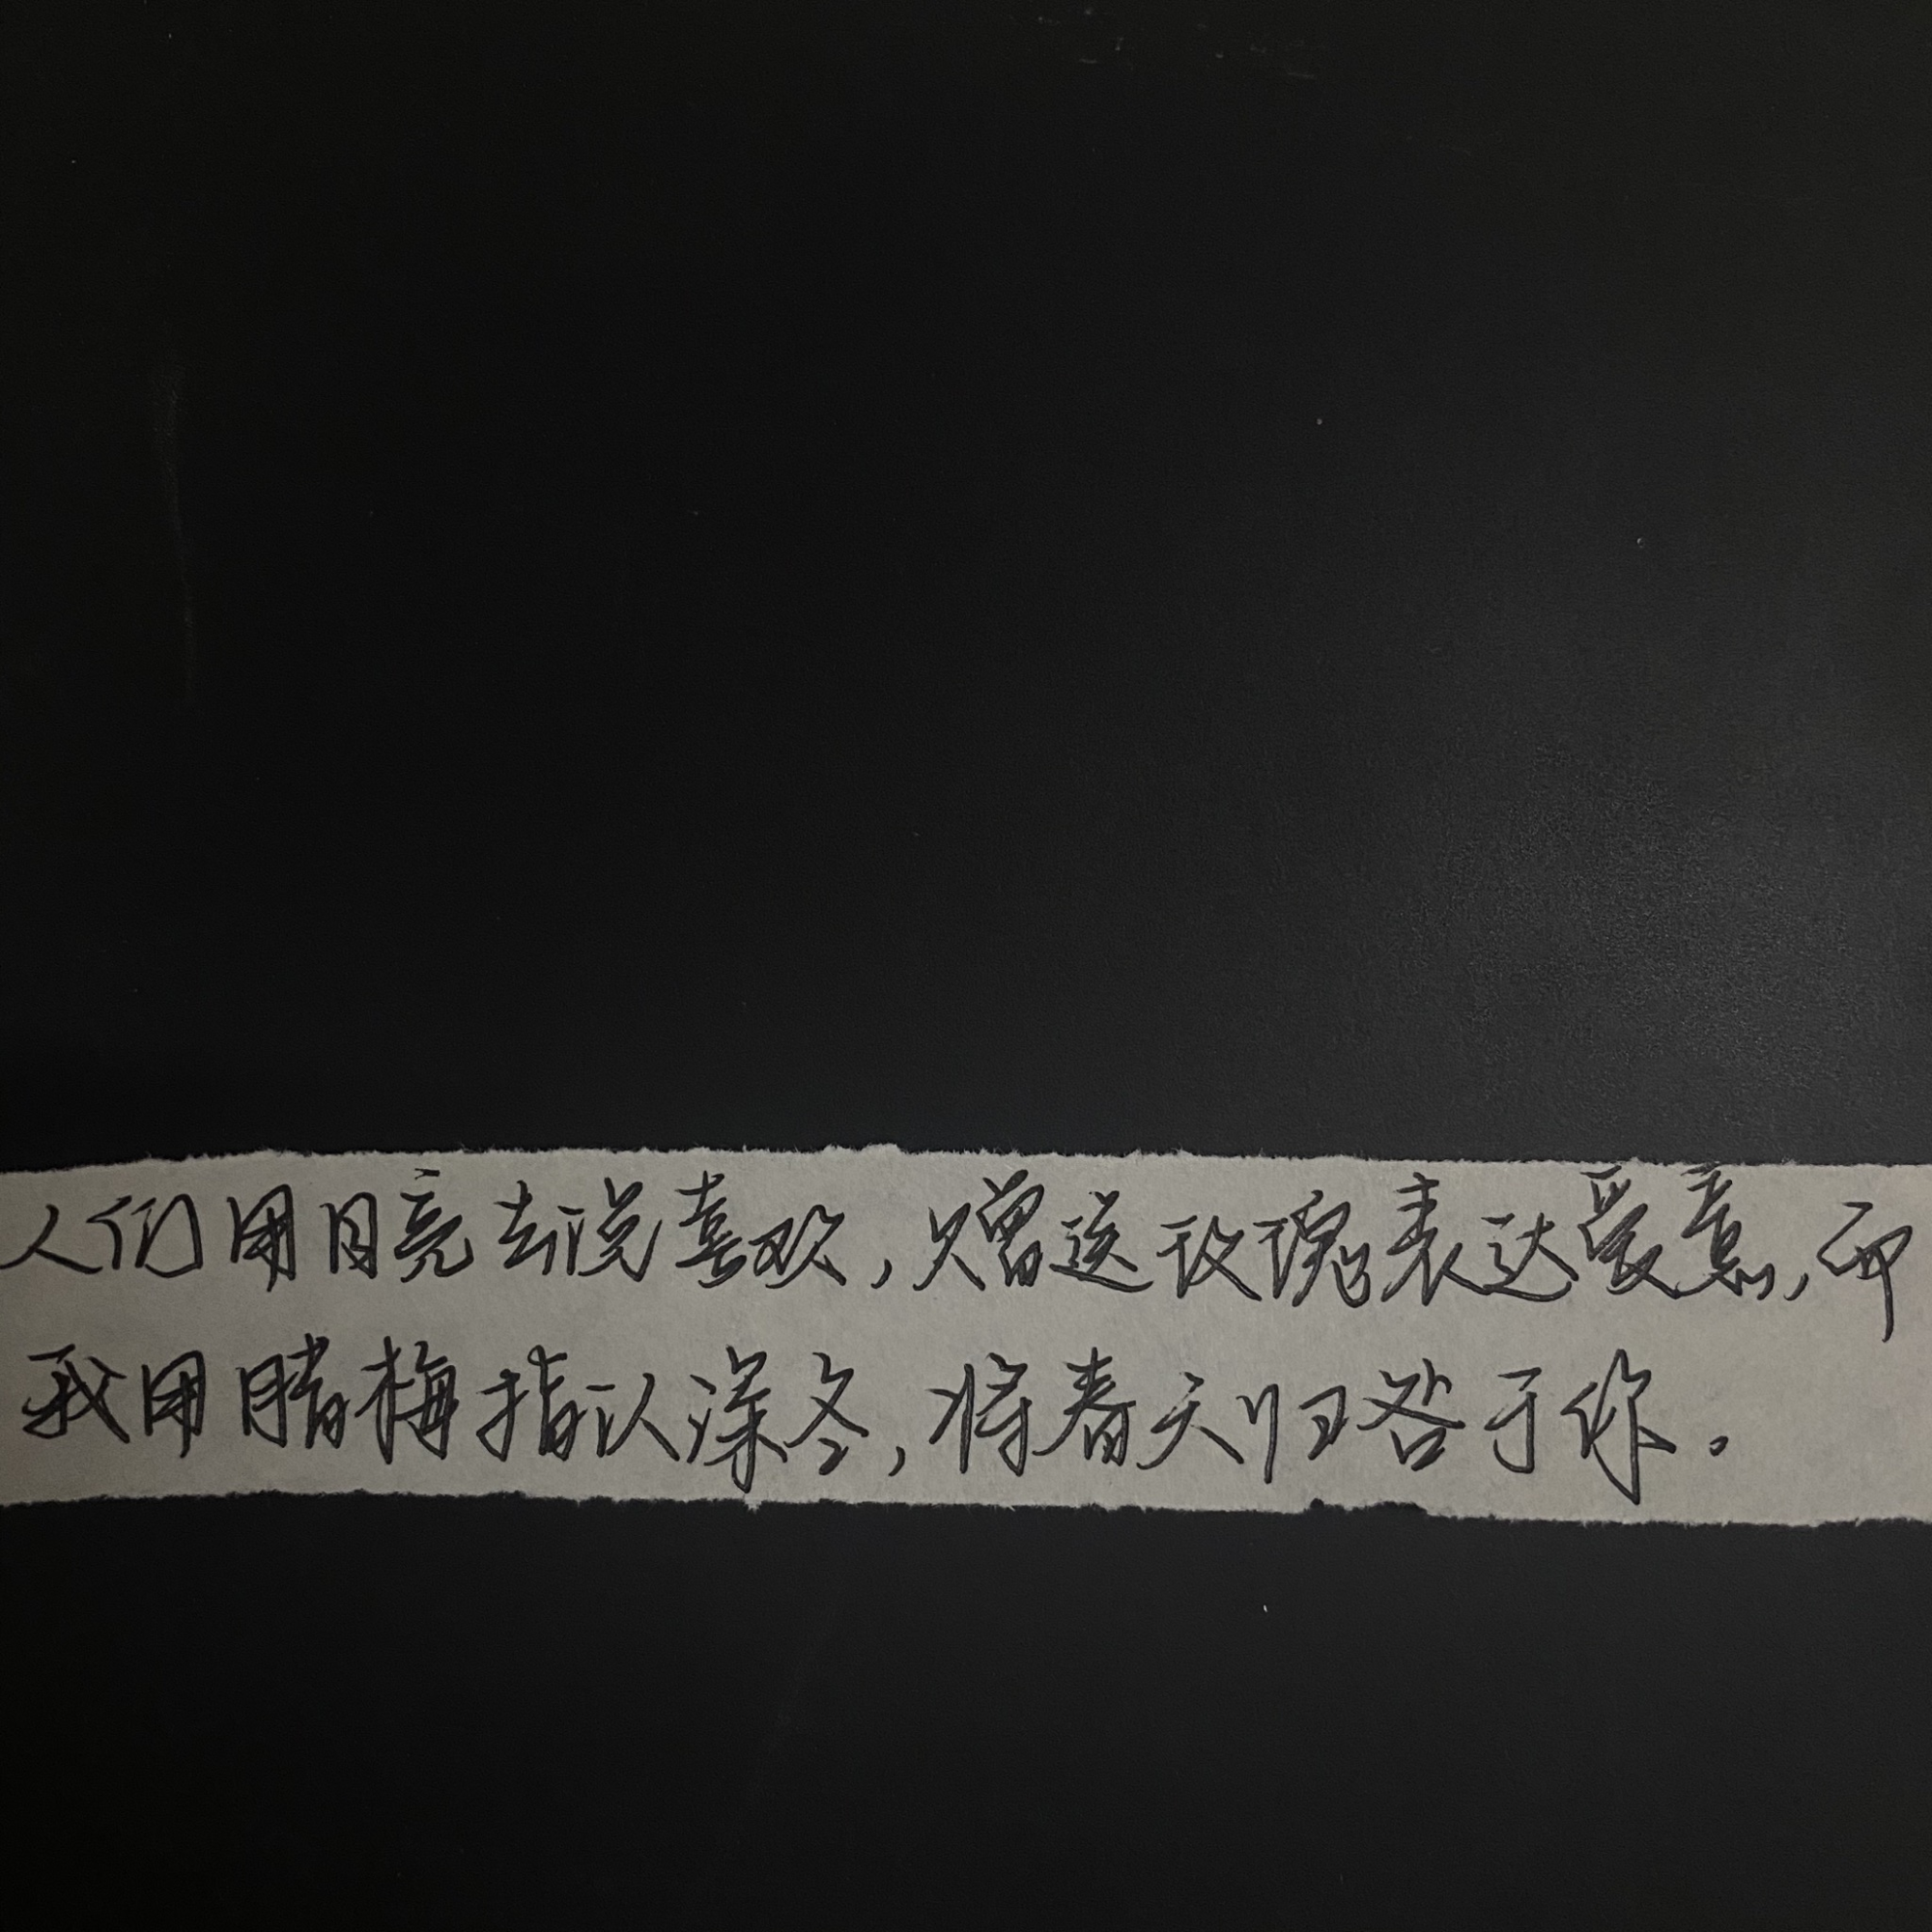 人们用月亮去说喜欢，赠送玫瑰表达爱意，而
我用腊梅指认深冬，将春天归咎于你。